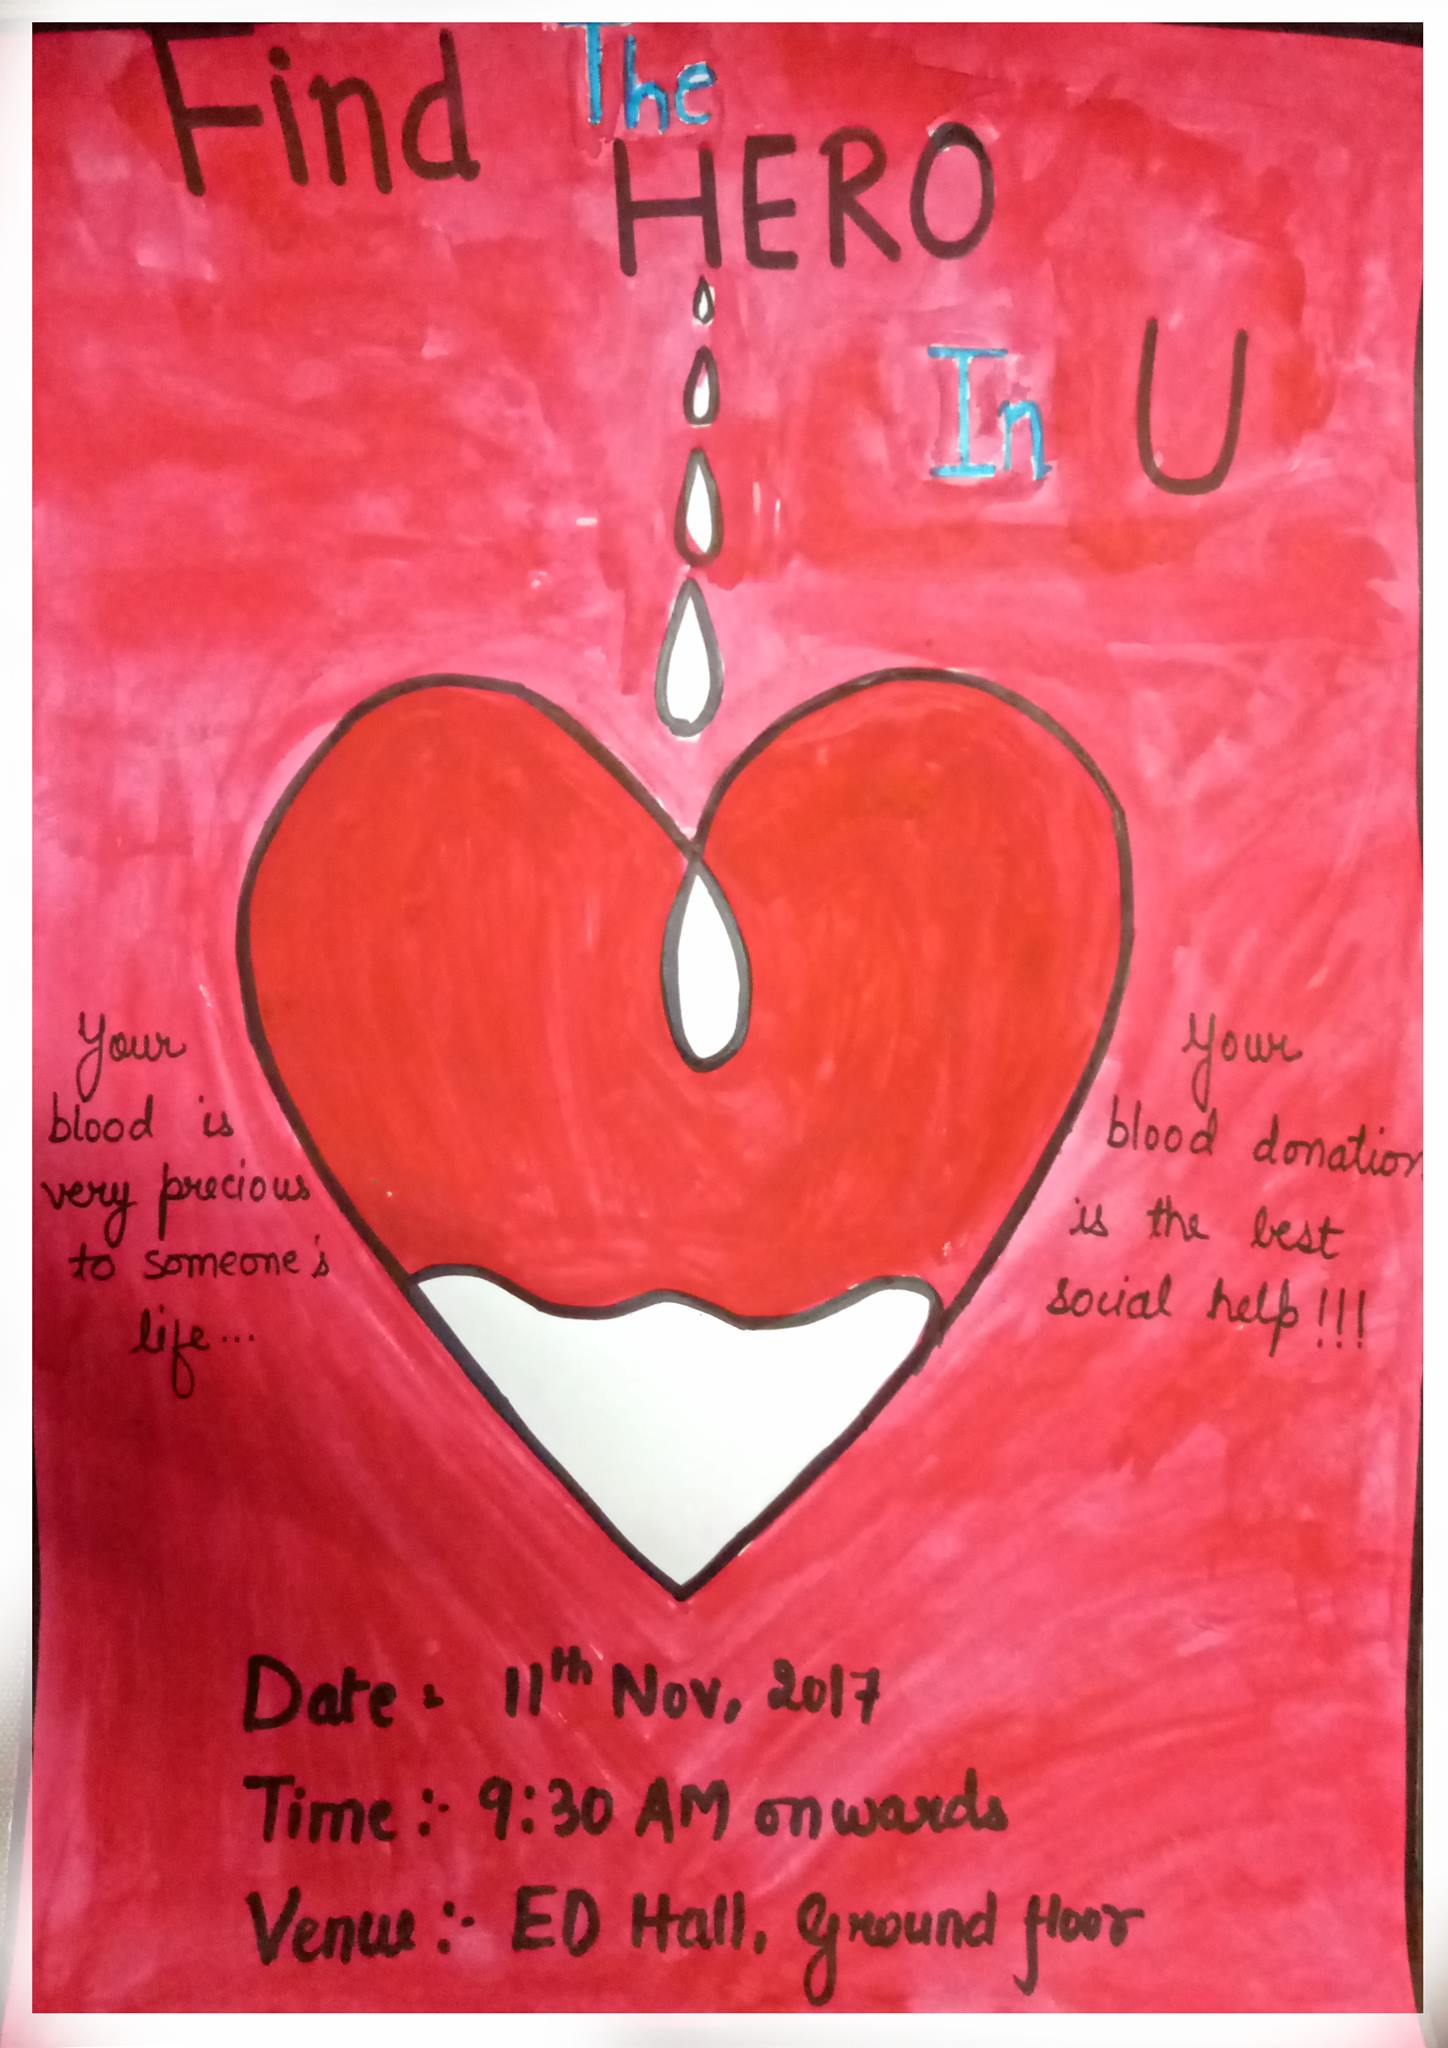 Find The
HERO
In U
Your
blood is
very precious
to someone's
life...
Your
blood donation
is the best
social help!!!
Date :- 11th Nov, 2017
Time :- 9:30 AM onwards
Venue :- ED Hall, Ground floor